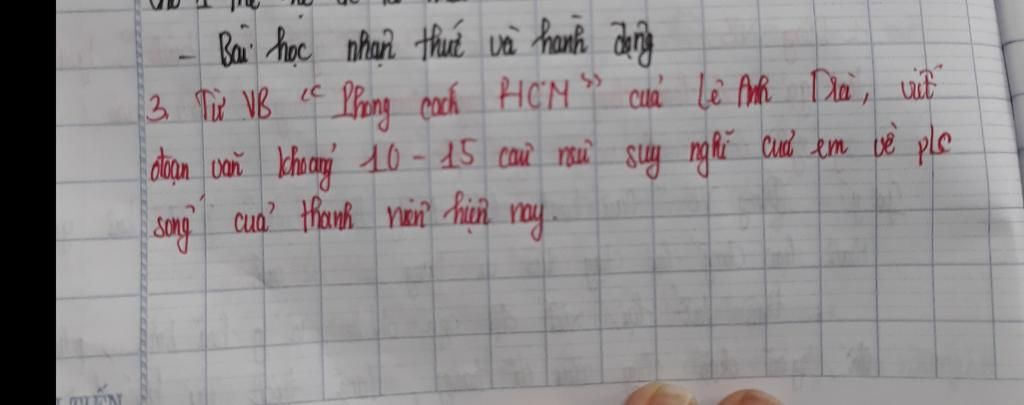 - Bài học nhận thức và hành động
3. Từ VB "Phong cách HCM" của Lê Anh Trà, viết
đoạn văn khoảng 10 - 15 câu nêu suy nghĩ của em về p/c
sống của thanh niên hiện nay.